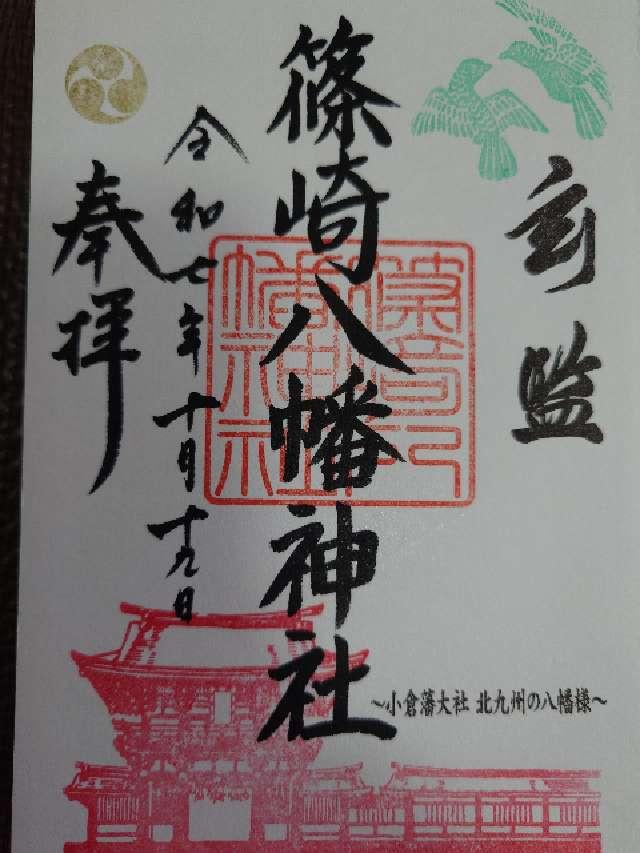 玄監
篠崎八幡神社
令和七年十月十九日
奉拝
～小倉藩大社 北九州の八幡様～